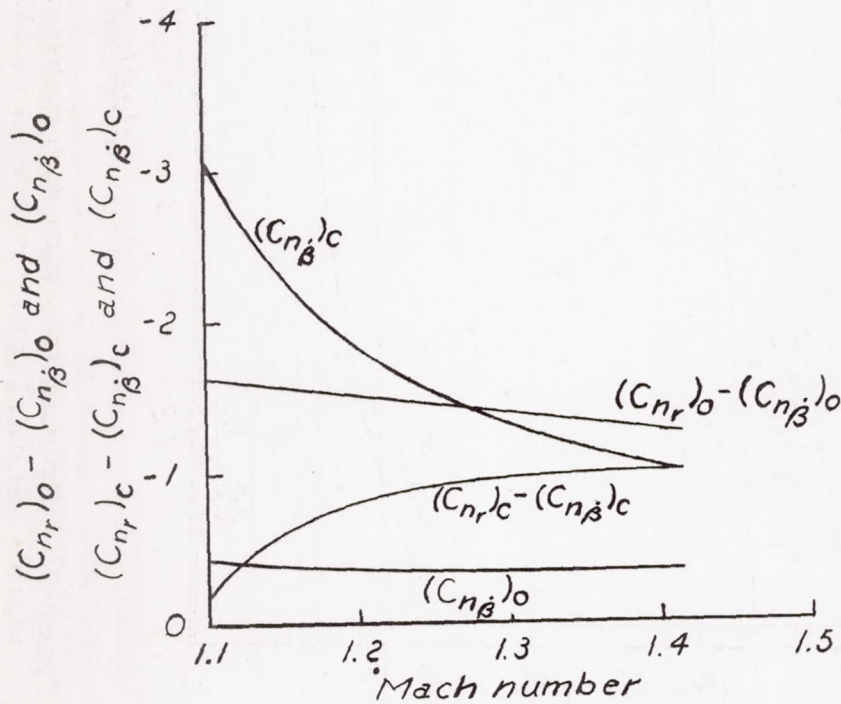 (Cnr)o - (Cnβ̇)o and (Cnβ̇)o
(Cnr)c - (Cnβ̇)c and (Cnβ̇)c
-4
-3
-2
-1
0
(Cnβ̇)c
(Cnr)o - (Cnβ̇)o
(Cnr)c - (Cnβ̇)c
(Cnβ̇)o
1.1 1.2 1.3 1.4 1.5
Mach number